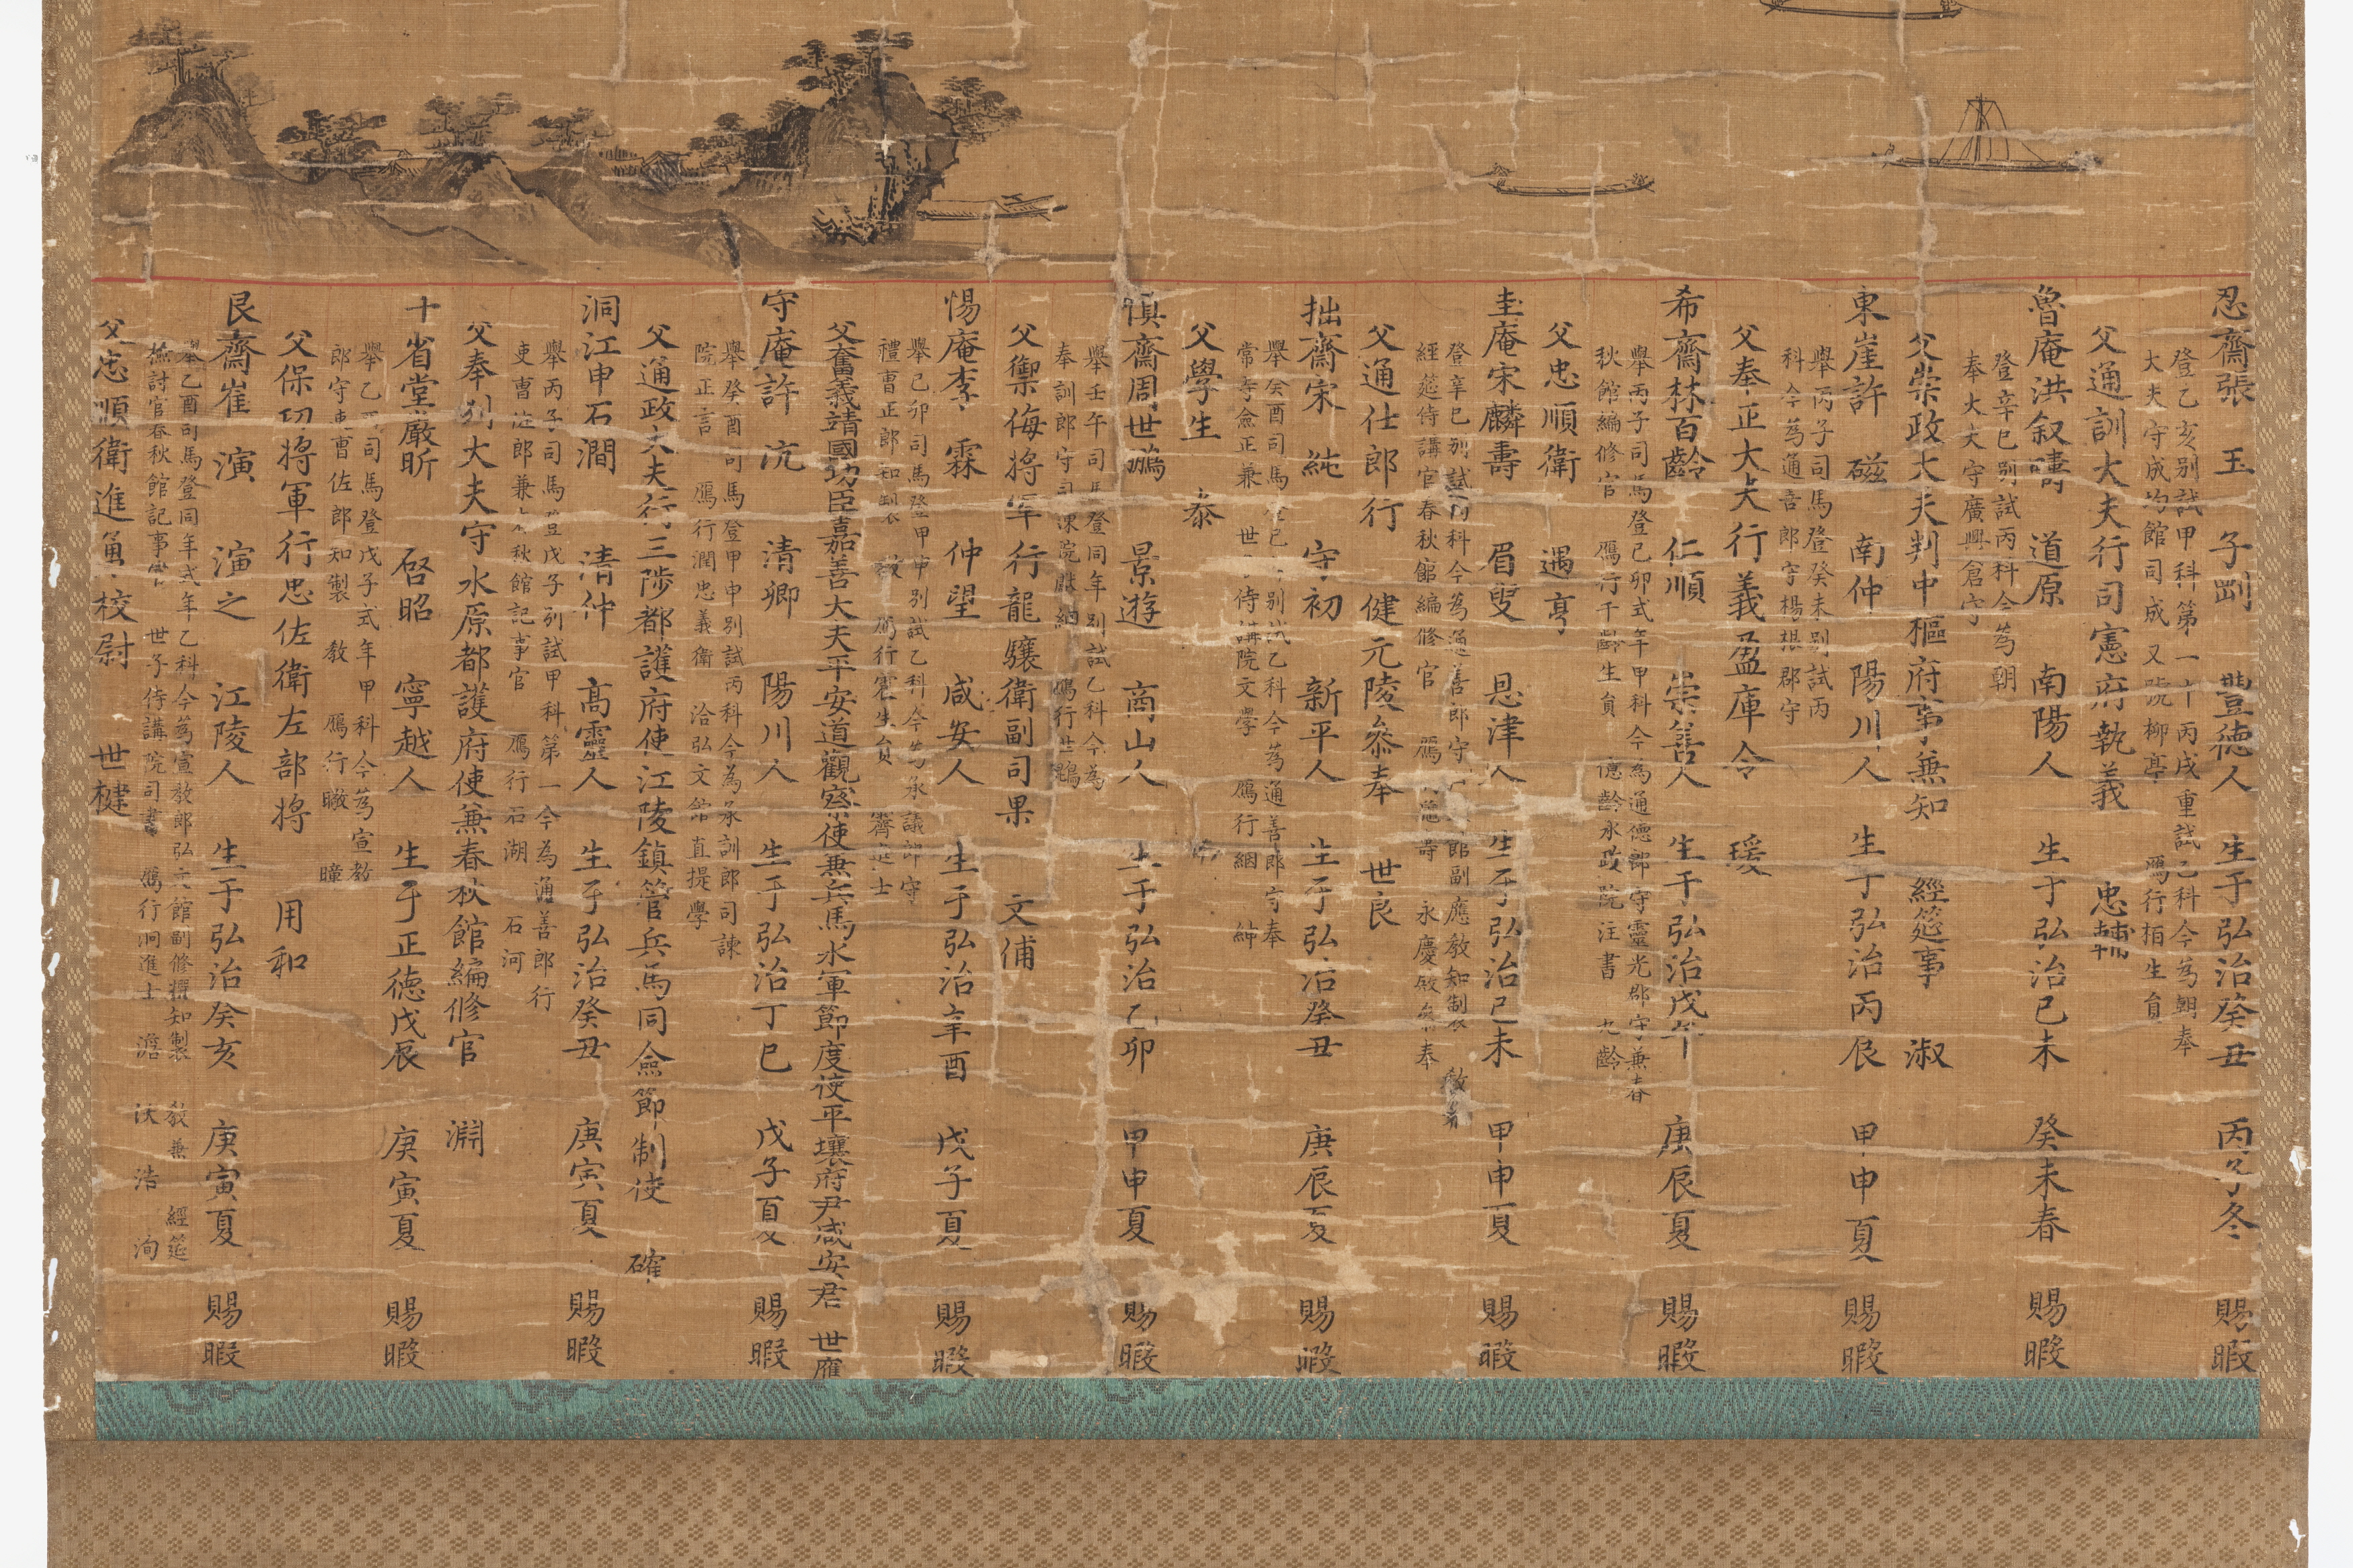 忍齋張 玉 子剛 豐德人 生于弘治癸丑 丙子冬 賜暇
登乙亥别試甲科第一 丙戌重試乙科今爲朝奉
大夫守成均館司成 又號柳亭 鴈行栢生員
父通訓大夫行司憲府執義 忠輔
魯庵洪叙疇 道原 南陽人 生于弘治己未 癸未春 賜暇
登辛巳别試丙科今爲朝
奉大夫守廣興倉守
父崇政大夫判中樞府事兼知 經筵事 淑
東崖許 磁 南仲 陽川人 生于弘治丙辰 甲申夏 賜暇
擧丙子司馬登癸未别試丙
科今爲通善郎守楊根郡守
父奉正大夫行義盈庫令 瑗
希齋林百齡 仁順 崇善人 生于弘治戊午 庚辰夏 賜暇
擧丙子司馬登己卯式年甲科今爲通德郎守靈光郡守兼春
秋館編修官 鴈行千齡生員 億齡承政院注書 九齡
父忠順衛 遇亨
圭庵宋麟壽 眉叟 恩津人 生于弘治己未 甲申夏 賜暇
登辛巳别試丙科今爲通善郎守 館副應敎知製敎
經筵侍講官春秋館編修官 鴈 永慶殿參奉
父通仕郎行 健元陵叅奉 世良
拙齋宋 純 守初 新平人 生于弘治癸丑 庚辰夏 賜暇
擧癸酉司馬 别試乙科今爲通善郎守奉
常寺僉正兼 世子侍講院文學 鴈行絪 紳
父學生 泰
愼齋周世鵬 景遊 商山人 生于弘治乙卯 甲申夏 賜暇
擧壬午司馬登同年别試乙科今爲
奉訓郎守司諫院獻納 鴈行世鵾
父禦侮將軍行龍驤衛副司果 文俌
惕庵李 霖 仲望 咸安人 生于弘治辛酉 戊子夏 賜暇
擧己卯司馬登甲申别試乙科今爲承議郎守
禮曹正郎知製 敎 鴈行霍生員 霽進士
父奮義靖國功臣嘉善大夫平安道觀察使兼兵馬水軍節度使平壤府尹咸安君 世應
守庵許 沆 清卿 陽川人 生于弘治丁巳 戊子夏 賜暇
擧癸酉司馬登甲申别試丙科今爲承訓郎司諫
院正言 鴈行潤忠義衛 洽弘文館直提學
父通政大夫行三陟都護府使江陵鎮管兵馬同僉節制使 確
洞江申石澗 清仲 高靈人 生于弘治癸丑 庚寅夏 賜暇
擧丙子司馬登戊子别試甲科第一今爲通善郎行
吏曹佐郎兼春秋館記事官 鴈行石湖 石河
父奉列大夫守水原都護府使兼春秋館編修官 淵
十省堂嚴昕 啓昭 寧越人 生于正德戊辰 庚寅夏 賜暇
擧乙酉司馬登戊子式年甲科今爲宣敎
郎守吏曹佐郎知製 敎 鴈行曔 曈
父保功將軍行忠佐衛左部將 用和
艮齋崔 演 演之 江陵人 生于弘治癸亥 庚寅夏 賜暇
擧乙酉司馬登同年式年乙科今爲宣敎郎弘文館副修撰知製 敎兼 經筵
檢討官春秋館記事官 世子侍講院司書 鴈行泂進士 澹 沃 浩 洵
父忠順衛進勇校尉 世楗